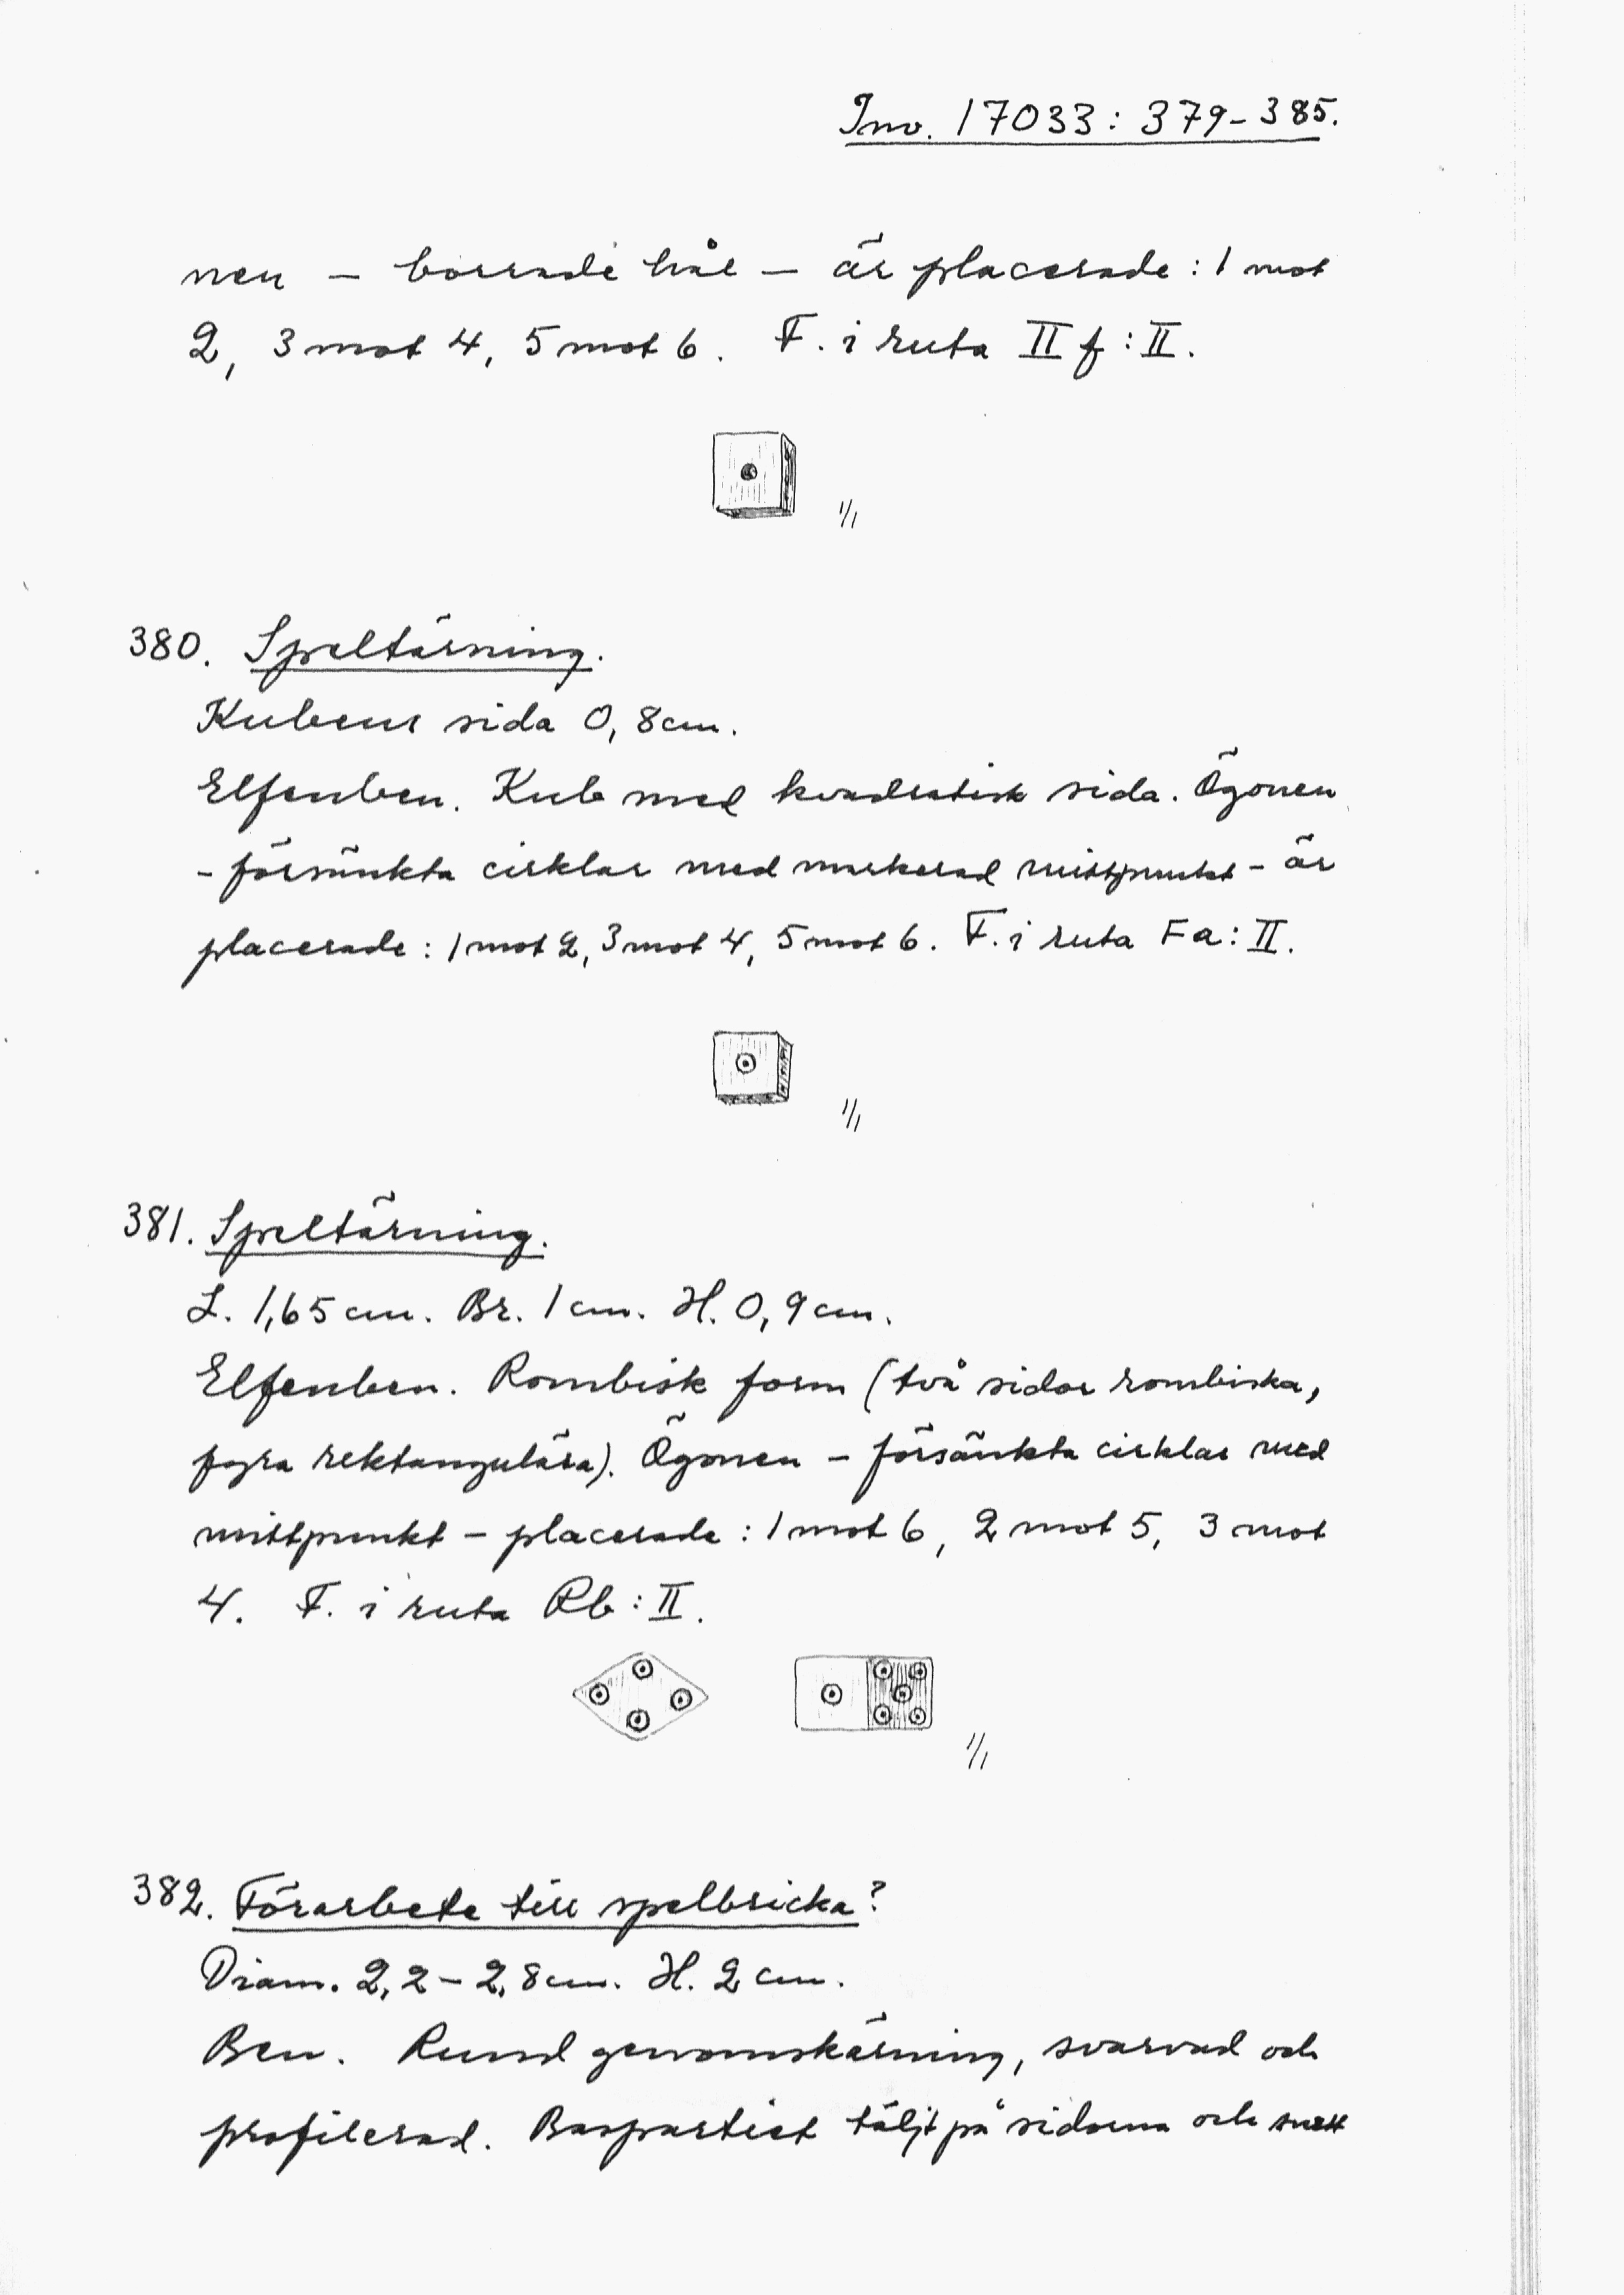 Inv. 17033: 379-385.
nen - borrade hål - är placerade: 1 mot
2, 3 mot 4, 5 mot 6. F. i ruta II f: II.
1/1
380. Speltärning.
Kubens sida 0,8 cm.
Elfenben. Kub med kvadratisk sida. Ögonen
- försänkta cirklar med markerad mittpunkt - är
placerade: 1 mot 2, 3 mot 4, 5 mot 6. F. i ruta Fa: II.
1/1
381. Speltärning.
L. 1,65 cm. Br. 1 cm. H. 0,9 cm.
Elfenben. Rombisk form (två sidor rombiska,
fyra rektangulära). Ögonen - försänkta cirklar med
mittpunkt - placerade: 1 mot 6, 2 mot 5, 3 mot
4. F. i ruta Rb: II.
1/1
382. Förarbete till spelbricka?
Diam. 2,2-2,8 cm. H. 2 cm.
Ben. Rund genomskärning, svarvad och
profilerad. Baspartiet täljt på sidorna och snett